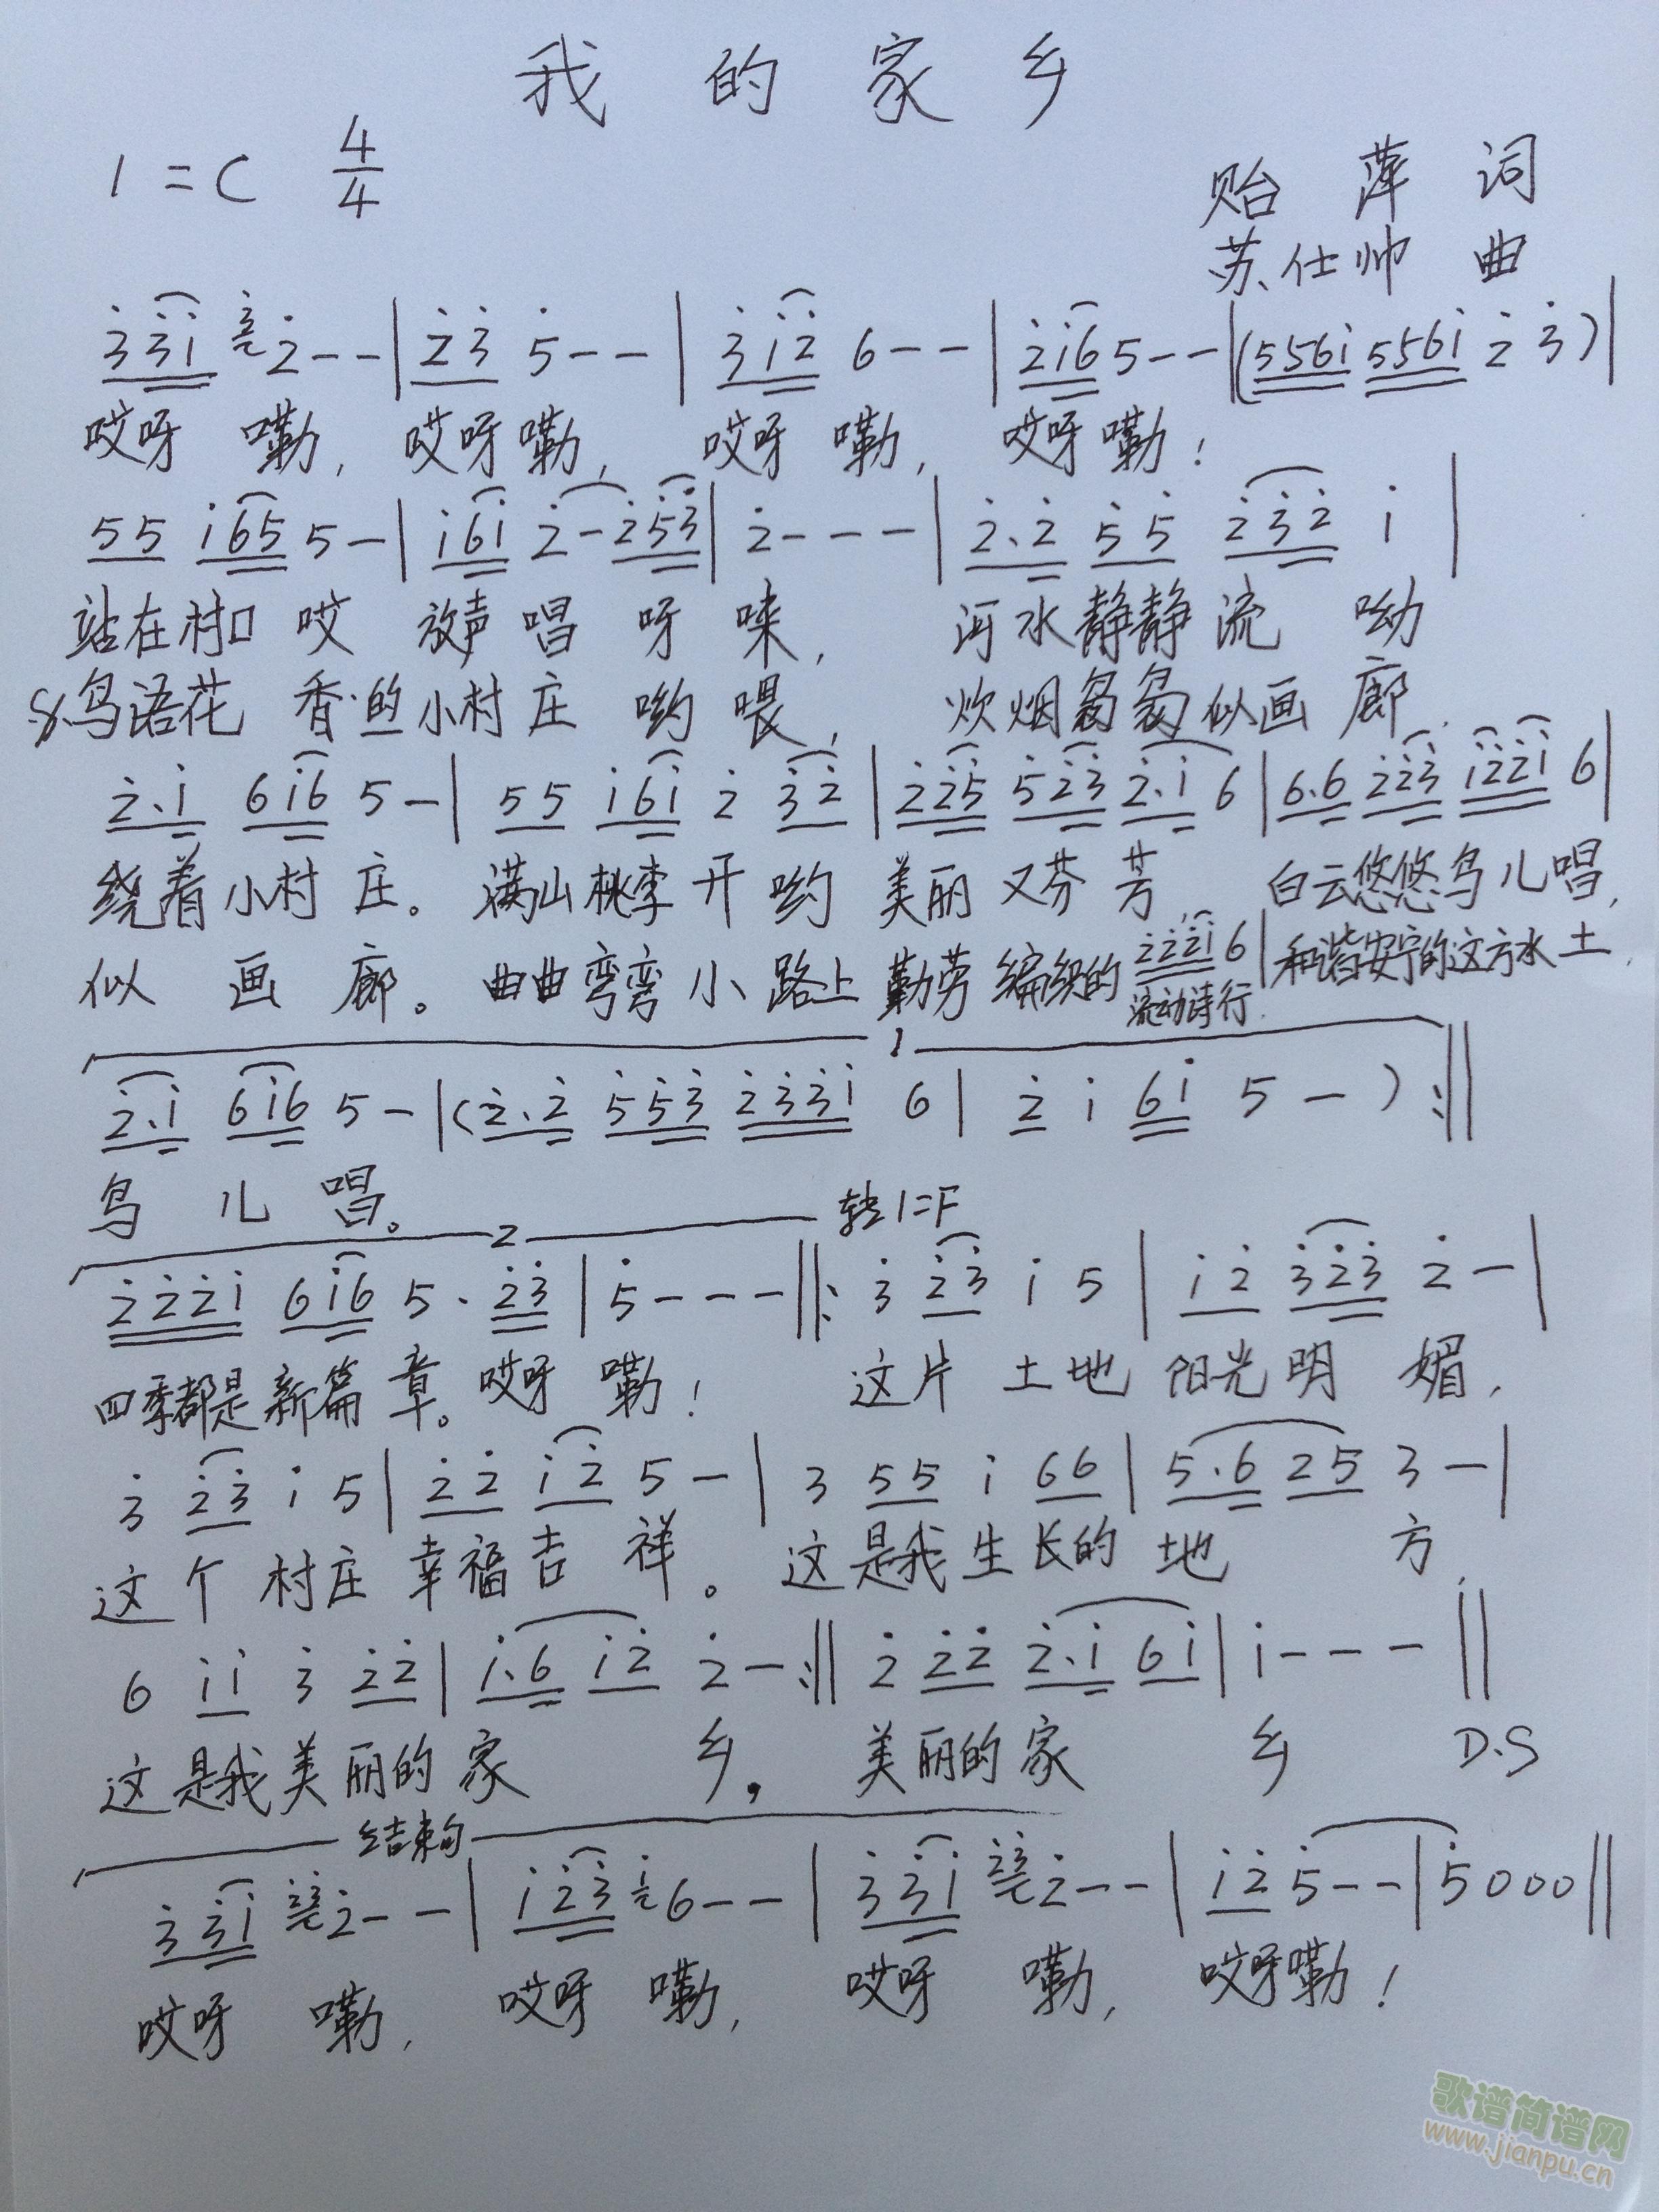 我 的 家 乡
1 = C 4/4
贻 萍 词
苏仕帅 曲
3̇ 3̇ 1̇ 3̇ 2̇ - - | 2̇ 3̇ 5̇ - - | 3̇ 1̇ 2̇ 6 - - | 2̇ 1̇ 6 5 - - | ( 5 5 6 1̇ 5 5 6 1̇ 2̇ 3̇ ) |
哎呀 嘞, 哎呀嘞, 哎呀 嘞, 哎呀嘞!
5 5 1̇ 6 5 5 - | 1̇ 6 1̇ 2̇ - 2̇ 5̇ 3̇ | 2̇ - - - | 2̇. 2̇ 5̇ 5̇ 2̇ 3̇ 2̇ 1̇ |
站在村口 哎 放声 唱 呀 唻, 河水静静 流 呦
鸟语花 香的小村 庄 呦 喂, 炊烟袅袅似画 廊,
2̇. 1̇ 6 1̇ 6 5 - | 5 5 1̇ 6 1̇ 2̇ 3̇ 2̇ | 2̇ 2̇ 5̇ 5̇ 2̇ 3̇ 2̇. 1̇ 6 | 6. 6 2̇ 2̇ 3̇ 1̇ 2̇ 2̇ 1̇ 6 |
绕着小村 庄。 满山桃李开 呦 美丽 又芬 芳, 白云悠悠鸟儿唱,
2̇ 2̇ 2̇ 1̇ 6 |
似 画 廊。 曲曲弯弯小路上 勤劳编织的 流动诗行, 和谐安宁的这方水土,
1
2̇. 1̇ 6 1̇ 6 5 - | ( 2̇. 2̇ 5̇ 5̇ 3̇ 2̇ 3̇ 3̇ 1̇ 6 | 2̇ 1̇ 6 1̇ 5 - ) :||
鸟 儿 唱。
2 转1=F
2̇ 2̇ 2̇ 1̇ 6 1̇ 6 5 . 2̇ 3̇ | 5̇ - - - ||: 3̇ 2̇ 3̇ 1̇ 5 | 1̇ 2̇ 3̇ 2̇ 3̇ 2̇ - |
四季都是新篇 章。哎呀 嘞! 这片 土地 阳光明 媚,
3̇ 2̇ 3̇ 1̇ 5 | 2̇ 2̇ 1̇ 2̇ 5 - | 3 5 5 1̇ 6 6 | 5. 6 2 5 3 - |
这个 村庄 幸福吉 祥。 这是我生长的 地 方,
6 1̇ 1̇ 3̇ 2̇ 2̇ | 1̇. 6 1̇ 2̇ 2̇ - :|| 2̇ 2̇ 2̇ 2̇. 1̇ 6 1̇ | 1̇ - - - ||
这是我美丽的 家 乡, 美丽的家 乡 D.S
结束句
3̇ 3̇ 1̇ 2̇ 3̇ 2̇ - - | 1̇ 2̇ 3̇ 1̇ 6 - - | 3̇ 3̇ 1̇ 2̇ 3̇ 2̇ - - | 1̇ 2̇ 5̇ - - | 5̇ 0 0 0 ||
哎呀 嘞, 哎呀 嘞, 哎呀 嘞, 哎呀嘞!
歌谱简谱网
www.jianpu.cn